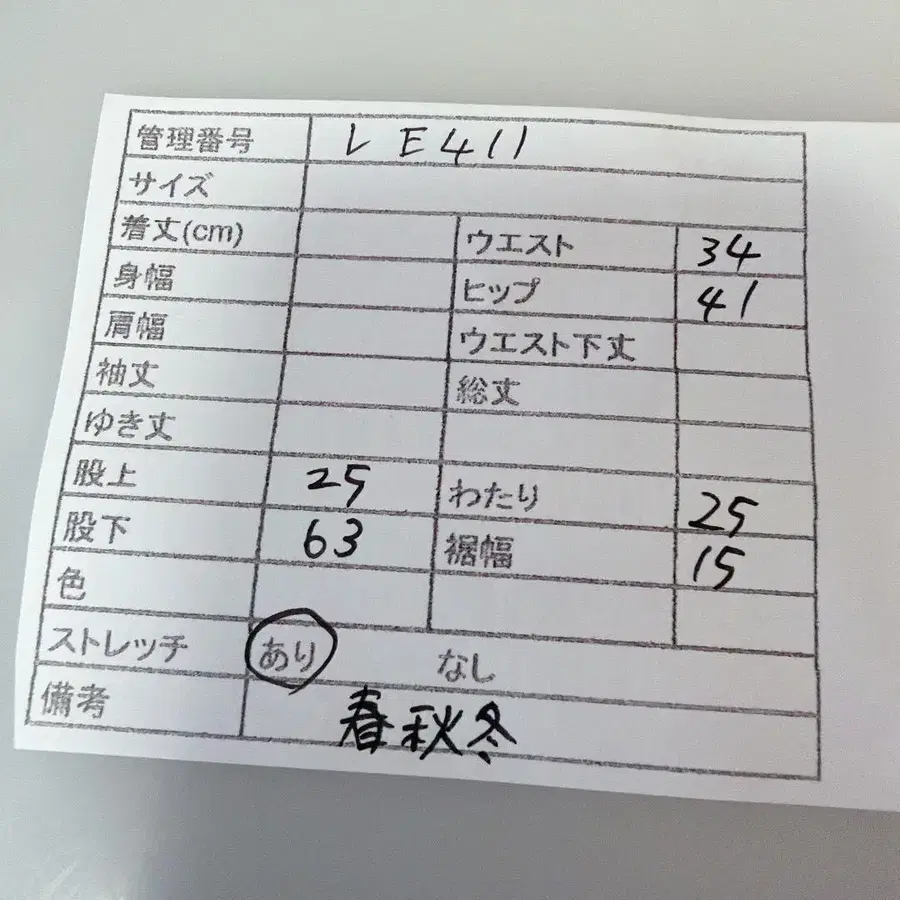 管理番号 LE411
サイズ
着丈(cm) ウエスト 34
身幅 ヒップ 41
肩幅 ウエスト下丈
袖丈 総丈
ゆき丈
股上 25 わたり 25
股下 63 裾幅 15
色
ストレッチ あり なし
備考 春秋冬